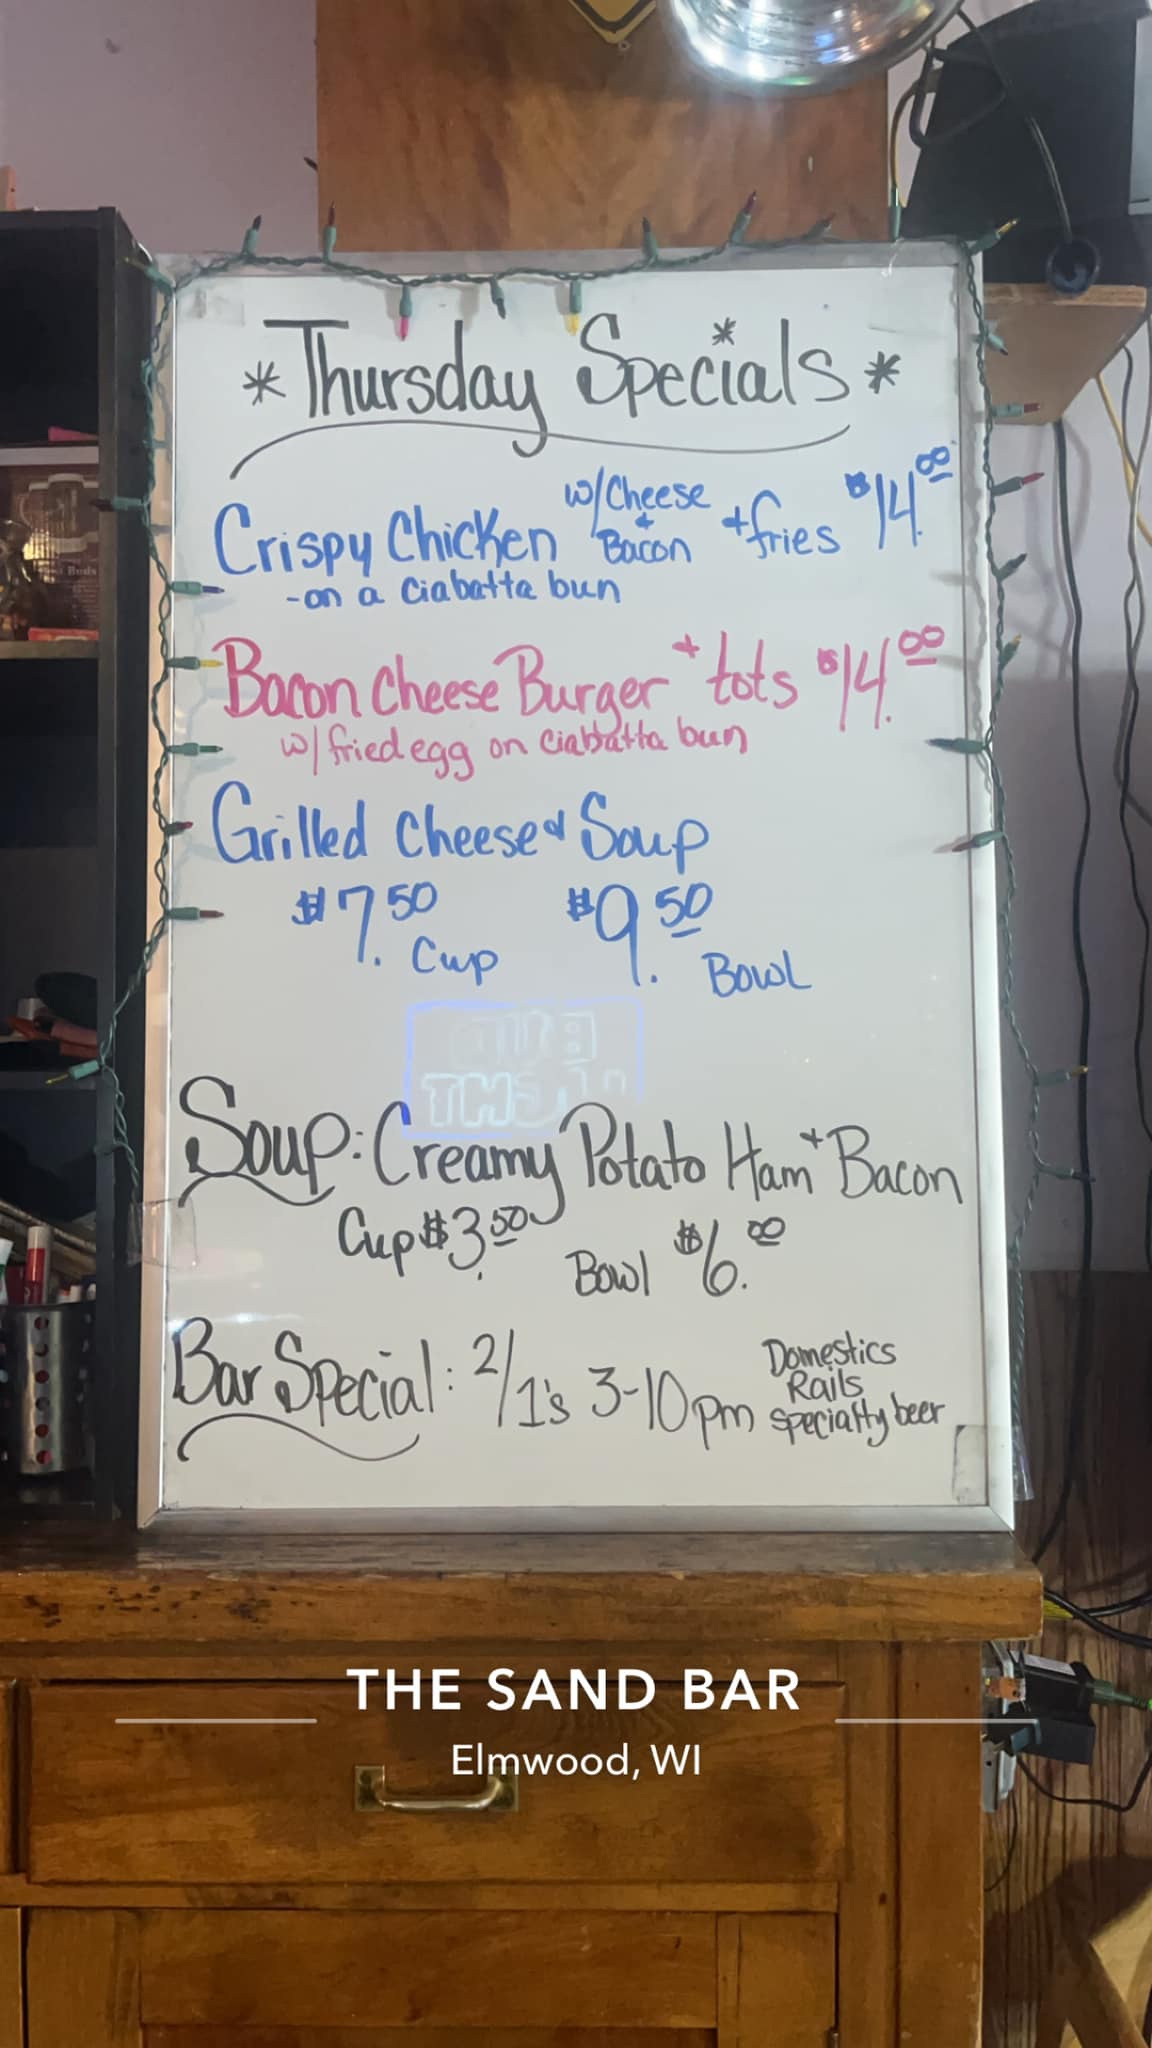 *Thursday Specials*
Crispy Chicken w/Cheese + Bacon + fries $14.00
-on a Ciabatta bun
Bacon Cheese Burger + tots $14.00
w/ fried egg on Ciabatta bun
Grilled Cheese & Soup
$7.50 Cup $9.50 Bowl
Soup: Creamy Potato Ham + Bacon
Cup $3.50 Bowl $6.00
Bar Special: 2/1's 3-10pm Domestics
Rails
Specialty beer
THE SAND BAR
Elmwood, WI